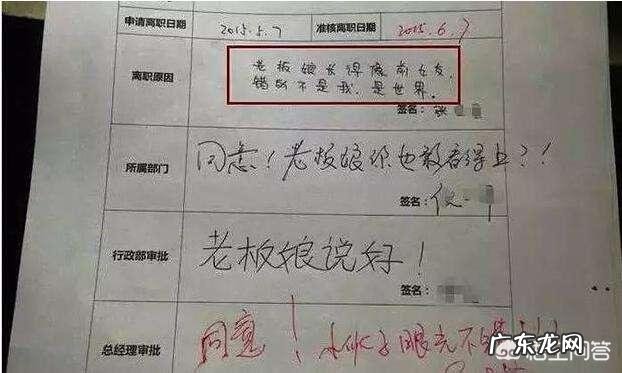 申请离职日期 2015.5.7 准核离职日期 2015.6.7
离职原因
老板娘长得像前女友,
错的不是我,是世界。
签名: 张
所属部门
同意!老板娘你也敢看得上?!
签名:
行政部审批
老板娘说好!
签名:
总经理审批
同意! 小伙子眼光不错
悟空问答
广东龙网